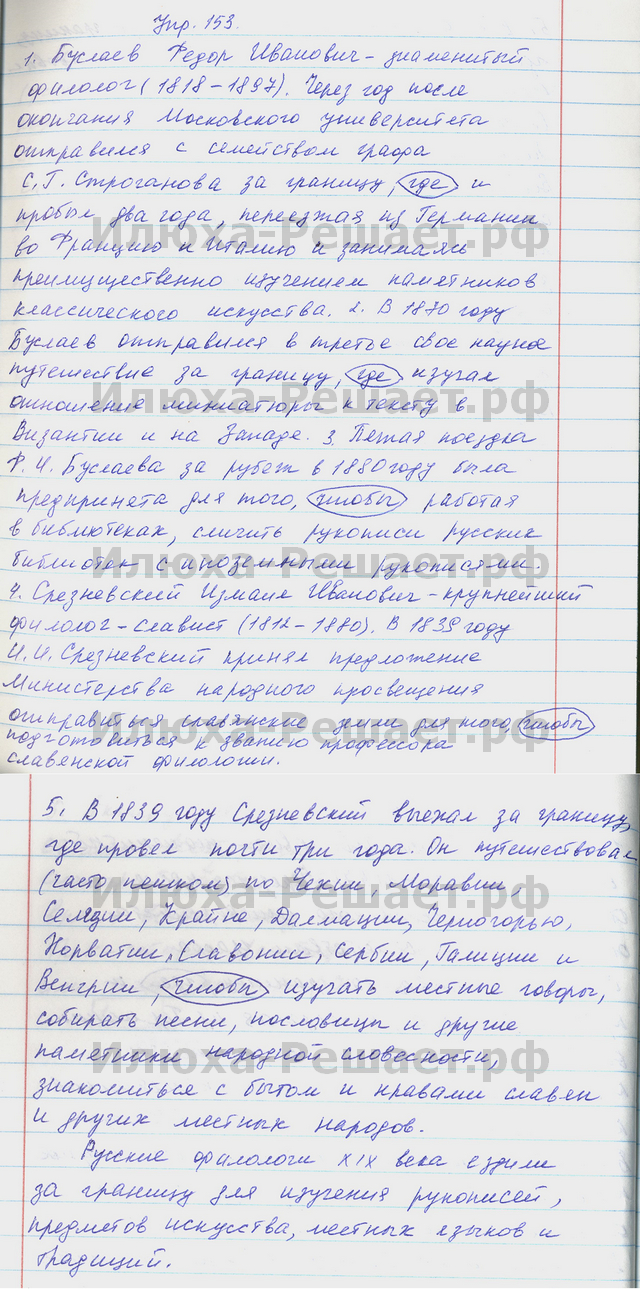 Упр. 153.
1. Буслаев Федор Иванович - знаменитый
филолог (1818 - 1897). Через год после
окончания Московского университета
отправился с семейством графа
С.Г. Строганова за границу, где и
пробыл два года, переезжая из Германии
во Францию и Италию и занимаясь
преимущественно изучением памятников
классического искусства. 2. В 1870 году
Буслаев отправился в третье свое научное
путешествие за границу, где изучал
отношение миниатюры к тексту в
Византии и на Западе. 3. Пятая поездка
Ф. И. Буслаева за рубеж в 1880 году была
предпринята для того, чтобы работая
в библиотеках, сличить рукописи русских
библиотек с иноземными рукописями.
4. Срезневский Измаил Иванович - крупнейший
филолог - славист (1812 - 1880). В 1839 году
И.И. Срезневский принял предложение
Министерства народного просвещения
отправиться славянские земли для того, чтобы
подготовиться к званию профессора
славянской филологии.
5. В 1839 году Срезневский выехал за границу,
где провел почти три года. Он путешествовал
(часто пешком) по Чехии, Моравии,
Селезии, Крайне, Далмации, Черногорью,
Хорватии, Славонии, Сербии, Галиции и
Венгрии, чтобы изучать местные говоры,
собирать песни, пословицы и другие
памятники народной словесности,
знакомиться с бытом и нравами славян
и других местных народов.
Русские филологи XIX века ездили
за границу для изучения рукописей,
предметов искусства, местных языков и
традиций.
Илюха-Решает.рф
Илюха-Решает.рф
Илюха-Решает.рф
Илюха-Решает.рф
Илюха-Решает.рф
Илюха-Решает.рф